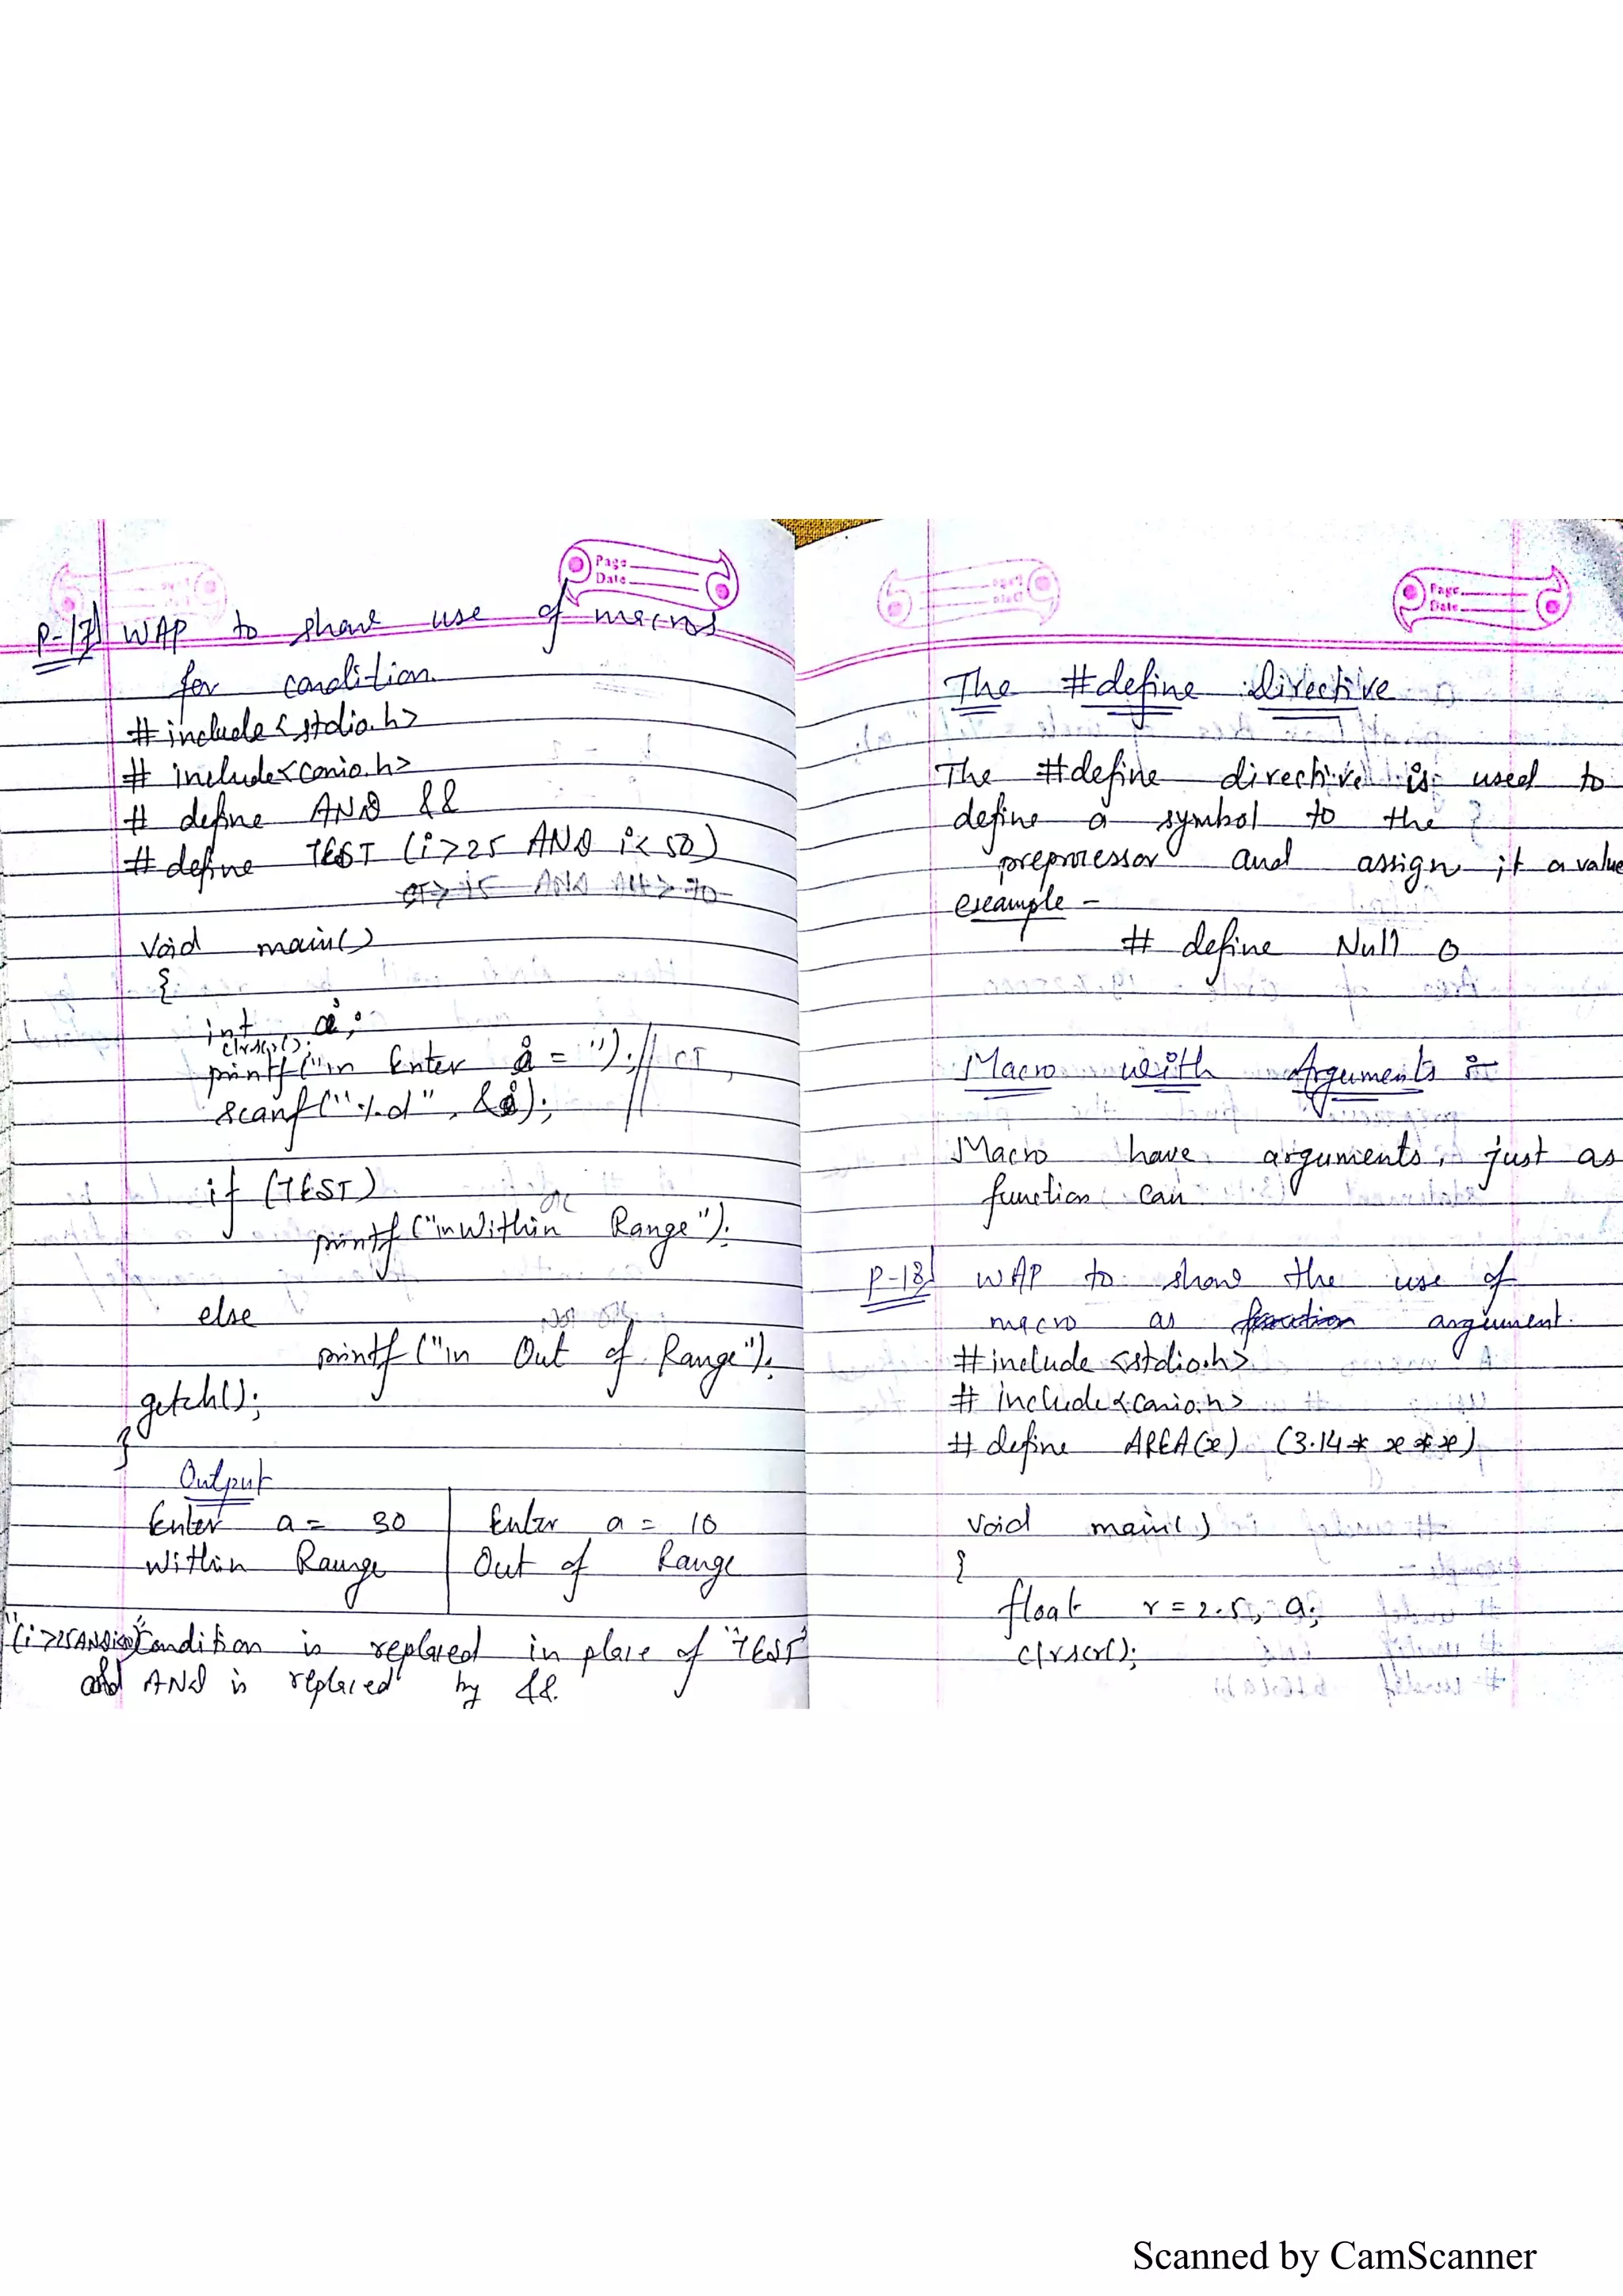 Page
Date
P-17] WAP to show use of macros
for condition.
#include<stdio.h>
# include<conio.h>
# define AND &&
# define TEST (i>25 AND i<50)
void main()
{
int i;
clrscr();
printf("\n Enter i = "); // CT,
scanf("%d", &i);
if (TEST)
printf("\nWithin Range");
else
printf("\n Out of Range");
getch();
}
Output
Enter a = 30 | Enter a = 10
Within Range | Out of Range
"(i>25ANDi<50)"Condition is replaced in place of "TEST"
and AND is replaced by &&.
Page
Date
The #define directive
The #define directive is used to
define a symbol to the
preprocessor and assign it a value
example -
# define Null 0
Macro with Arguments :-
Macro have arguments, just as
function can
P-18] WAP to show the use of
macro as function argument.
#include <stdio.h>
# include<conio.h>
# define AREA(x) (3.14* x *x)
void main()
{
float r = 2.5, a;
clrscr();
Scanned by CamScanner